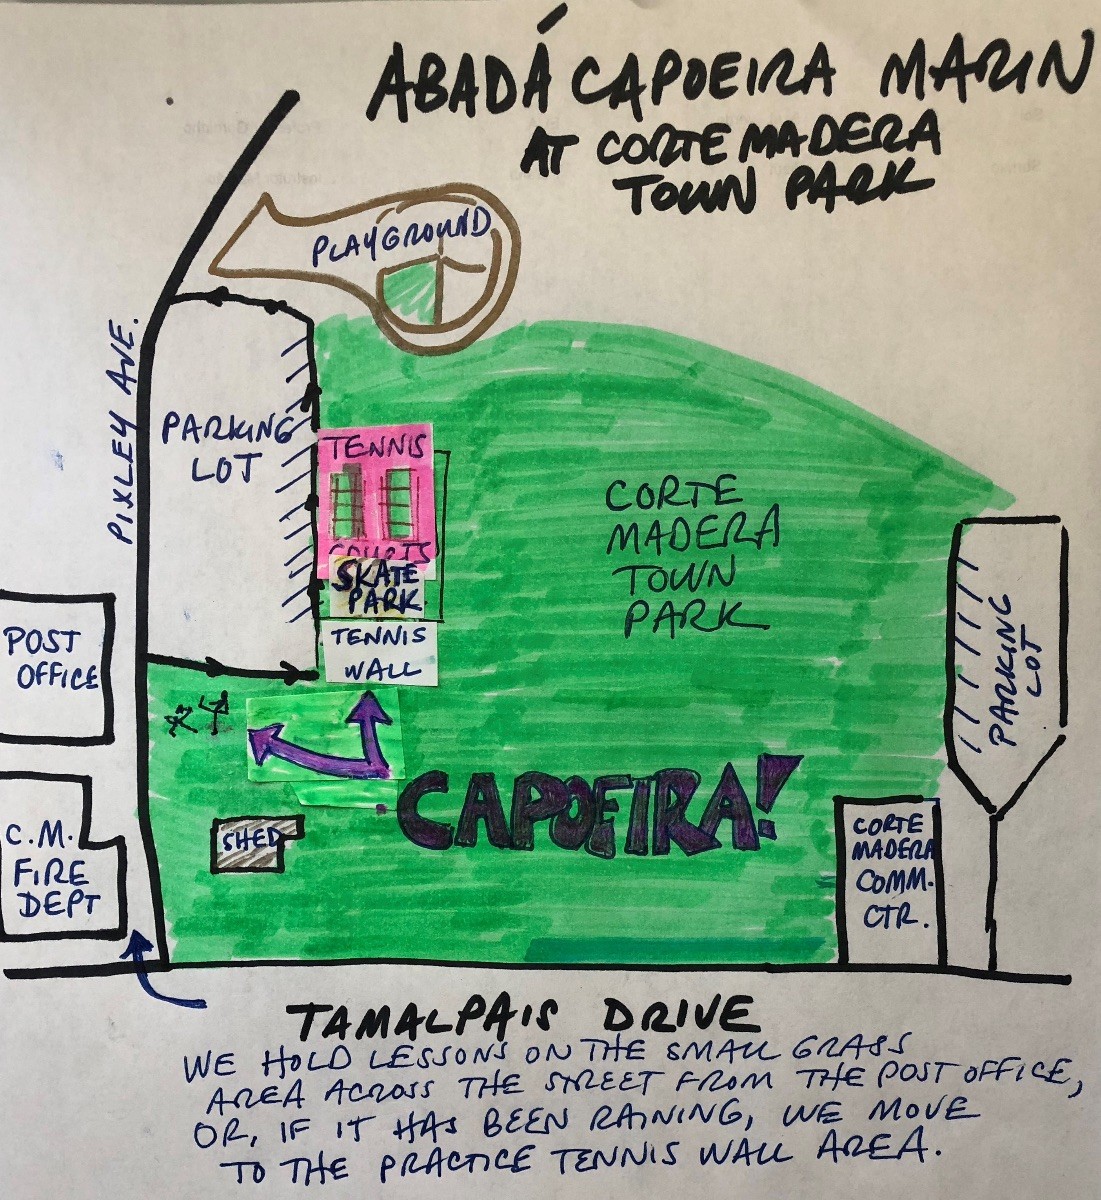 ABADÁ CAPOEIRA MARIN
AT CORTE MADERA
TOWN PARK
PLAYGROUND
PIXLEY AVE.
PARKING
LOT
TENNIS
COURTS
SKATE
PARK
TENNIS
WALL
CORTE
MADERA
TOWN
PARK
PARKING
LOT
POST
OFFICE
CAPOEIRA!
SHED
C.M.
FIRE
DEPT
CORTE
MADERA
COMM.
CTR.
TAMALPAIS DRIVE
WE HOLD LESSONS ON THE SMALL GRASS
AREA ACROSS THE STREET FROM THE POST OFFICE,
OR, IF IT HAS BEEN RAINING, WE MOVE
TO THE PRACTICE TENNIS WALL AREA.